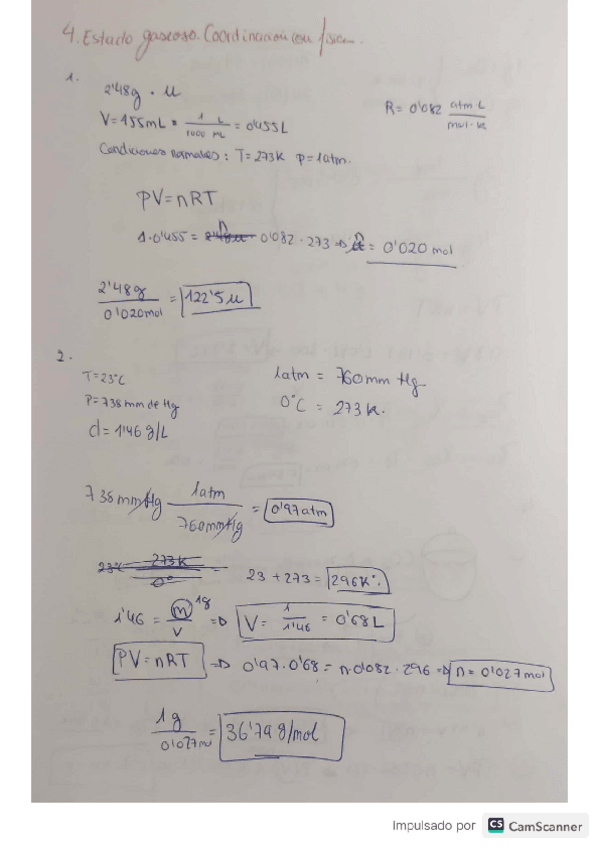 4. Estado gaseoso. Coordinación con física.
1.
2'48g · M
V=455mL · 1 L / 1000 mL = 0'455L
R = 0'082 atm·L / mol·K
Condiciones normales: T=273K p=1atm.
PV=nRT
1·0'455 = n 0'082 · 273 => n = 0'020 mol
2'48g / 0'020mol = 122'5 u
2.
T=23°C
1atm = 760mm Hg
P=738 mm de Hg
0°C = 273 K.
d = 1'46 g/L
738 mmHg 1atm / 760mmHg = 0'97 atm
23 + 273 = 296K.
1'46 = m / V 1g => V = 1 / 1'46 = 0'68 L
PV=nRT => 0'97·0'68 = n·0'082·296 => n = 0'027 mol
1g / 0'027mol = 36'79 g/mol
Impulsado por CS CamScanner